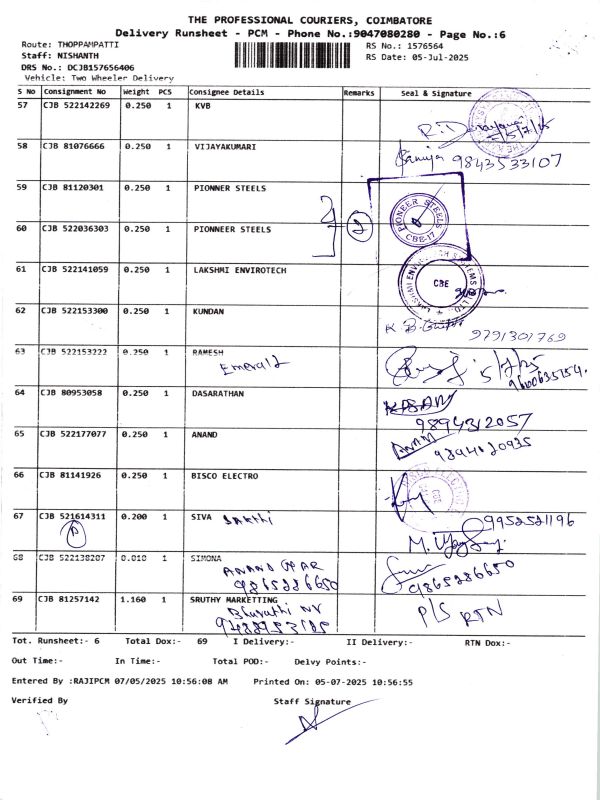 THE PROFESSIONAL COURIERS, COIMBATORE
Delivery Runsheet - PCM - Phone No.:9047080280 - Page No.:6
Route: THOPPAMPATTI RS No.: 1576564
Staff: NISHANTH RS Date: 05-Jul-2025
DRS No.: DCJB157656406
Vehicle: Two Wheeler Delivery
S No Consignment No Weight PCS Consignee Details Remarks Seal & Signature
57 CJB 522142269 0.250 1 KVB
58 CJB 81076666 0.250 1 VIJAYAKUMARI
9843533107
59 CJB 81120301 0.250 1 PIONNER STEELS
PIONEER STEELS CBE-17
60 CJB 522036303 0.250 1 PIONNEER STEELS 2
61 CJB 522141059 0.250 1 LAKSHMI ENVIROTECH
CBE
62 CJB 522153300 0.250 1 KUNDAN
9791301769
63 CJB 522153222 0.250 1 RAMESH
Emerald 5/7/25
9600635154.
64 CJB 80953058 0.250 1 DASARATHAN
9894312057
65 CJB 522177077 0.250 1 ANAND
66 CJB 81141926 0.250 1 BISCO ELECTRO
67 CJB 521614311 0.200 1 SIVA Sakthi 9952521196
68 CJB 522138207 0.010 1 SIMONA
9865286650 9865286650
69 CJB 81257142 1.160 1 SRUTHY MARKETTING P/S RTN
Tot. Runsheet:- 6 Total Dox:- 69 I Delivery:- II Delivery:- RTN Dox:-
Out Time:- In Time:- Total POD:- Delvy Points:-
Entered By :RAJIPCM 07/05/2025 10:56:08 AM Printed On: 05-07-2025 10:56:55
Verified By Staff Signature